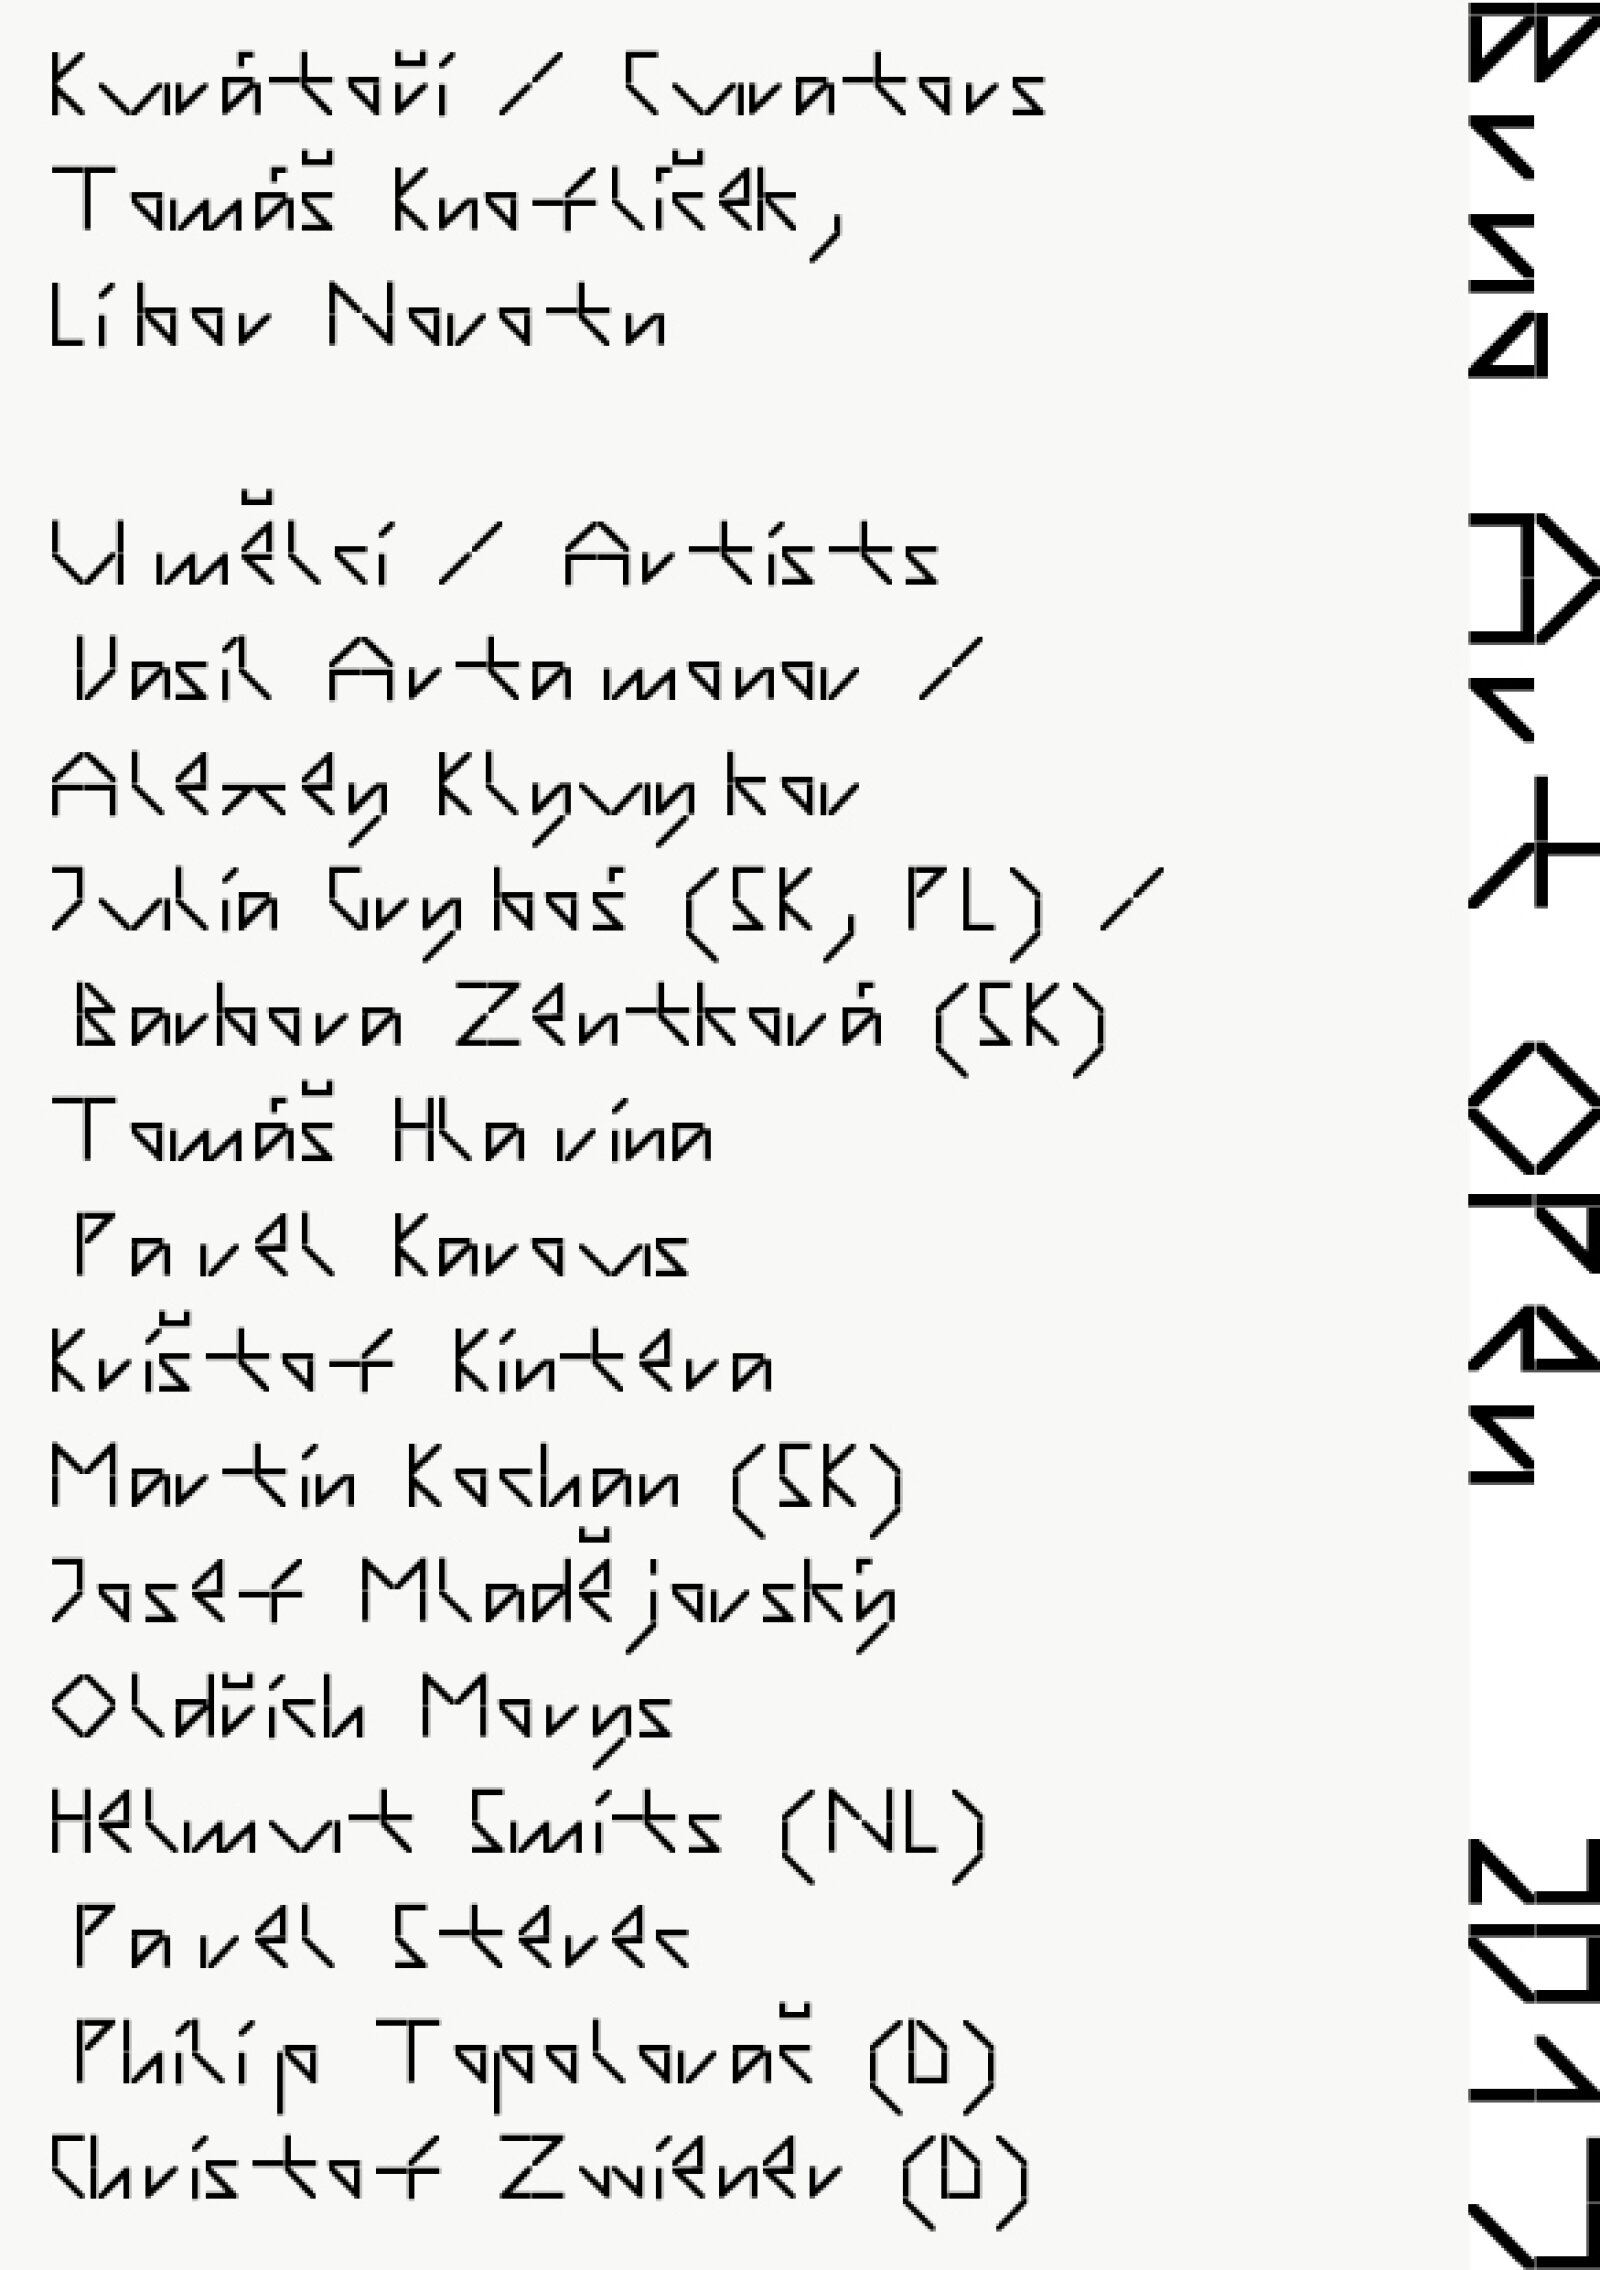 Kurátoři / Curators
Tomáš Knoflíček,
Libor Novotn
Umělci / Artists
Vasil Artamonov /
Alexey Klyuykov
Julia Gryboś (SK, PL) /
Barbora Zentková (SK)
Tomáš Hlavina
Pavel Karous
Krištof Kintera
Martin Kochan (SK)
Josef Mladějovský
Oldřich Morys
Helmut Smits (NL)
Pavel Sterec
Philip Topolovač (D)
Christof Zwiener (D)
Brno Art Open 2017